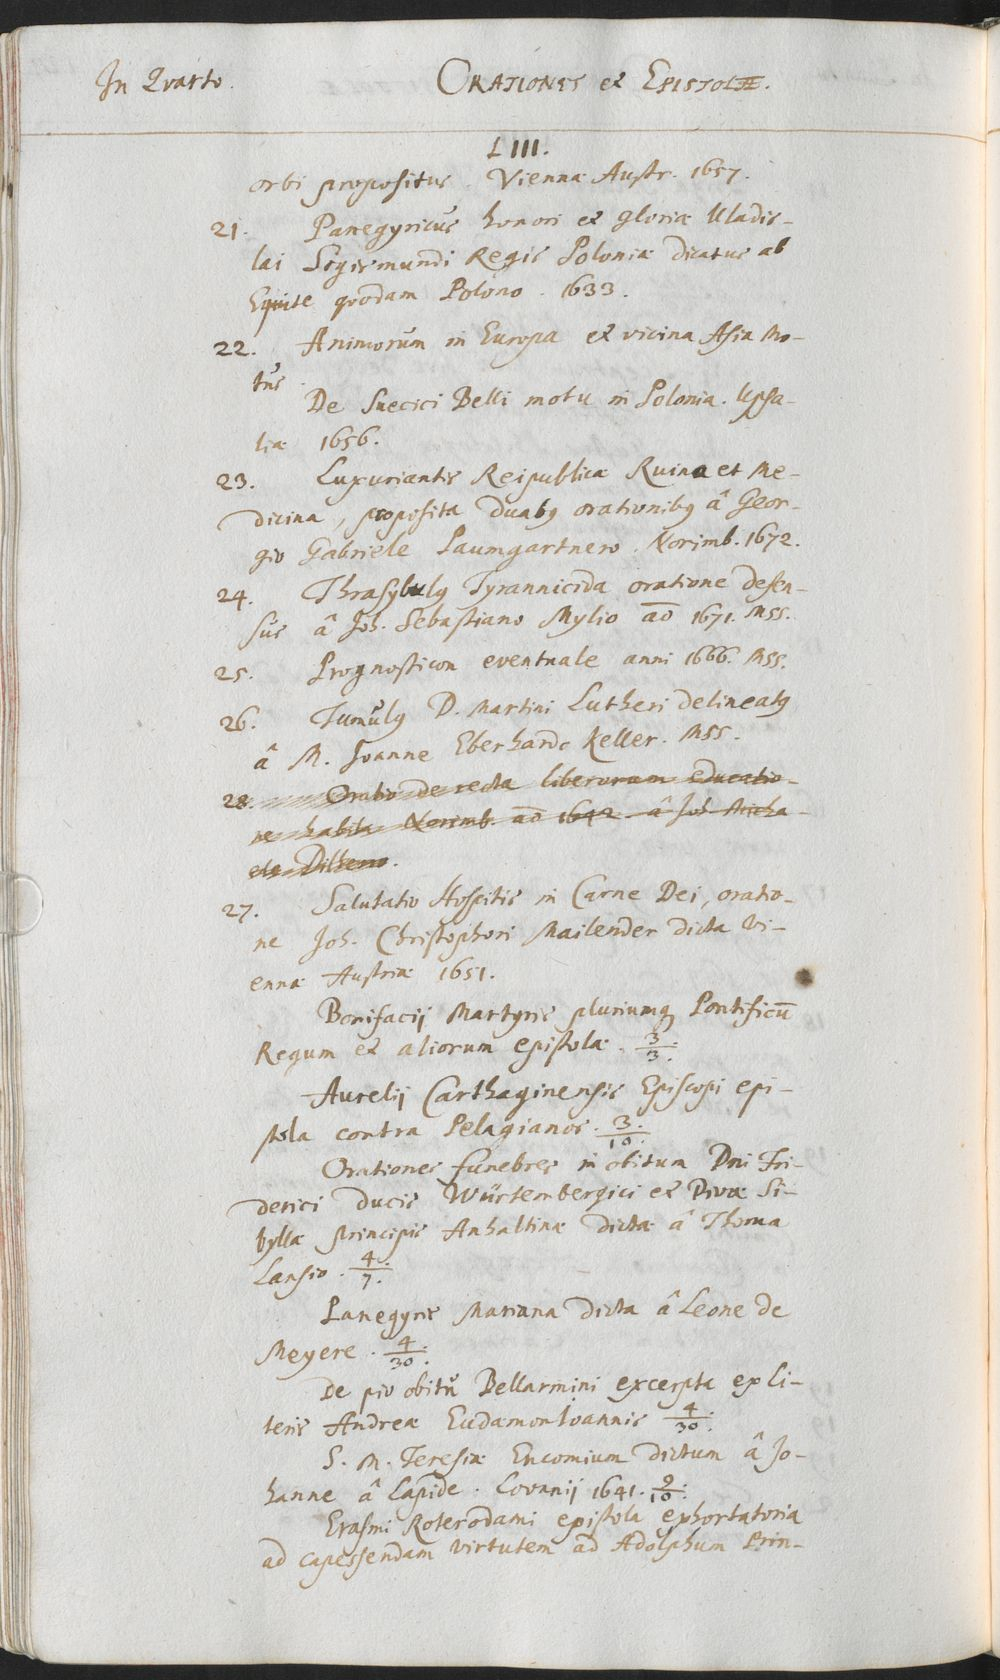 In Qvarto. ORATIONES et EPISTOLÆ.
LIII.
orbi propositus. Viennæ Austr. 1657.
21. Panegyricus honori et gloriæ Uladis-
lai Sigismundi Regis Poloniæ dicatus ab
Equite qvodam Polono. 1633.
22. Animorum in Europa et vicina Asia Mo-
tus.
De Suecici Belli motu in Polonia. Upsa-
liæ 1656.
23. Luxuriantis Reipublicæ Ruina et Me-
dicina, proposita duabq orationibq â Geor-
gio Gabriele Paumgartnero. Norimb. 1672.
24. Thrasybulq Tyrannicida oratione defen-
sus â Joh. Sebastiano Mylio aõ 1671. Mss.
25. Prognosticon eventuale anni 1666. Mss.
26. Tumulq D. Martini Lutheri delineatq
â M. Joanne Eberhardo Keller. Mss.
28. Oratio de recta liberorum educatio-
ne habita Norimb. aõ 1642. â Joh. Micha-
ele Dilherro.
27. Salutatio Hospitis in Carne Dei, oratio-
ne Joh. Christophori Mailender dicta Vi-
ennæ Austriæ 1651.
Bonifacij Martyris pluriumq Pontificū
Regum et aliorum epistolæ. 3/3.
Aurelij Carthaginensis Episcopi epi-
stola contra Pelagianos. 3/10.
Orationes funebres in obitum Dni Fri-
derici Ducis Würtembergici et Divæ Si-
byllæ principis Anhaltinæ dictæ â Thoma
Lansio. 4/7.
Panegyris Mariana dicta â Leone de
Meyere. 4/30.
De pio obitu Bellarmini excerpta ex li-
teris Andreæ Eudæmon Ioannis 4/30.
S. M. Teresiæ Encomium dictum â Jo-
hanne â Lapide. Lovanij 1641. 9/10.
Erasmi Roterodami epistola exhortatoria
ad capessendam virtutem ad Adolphum Prin-